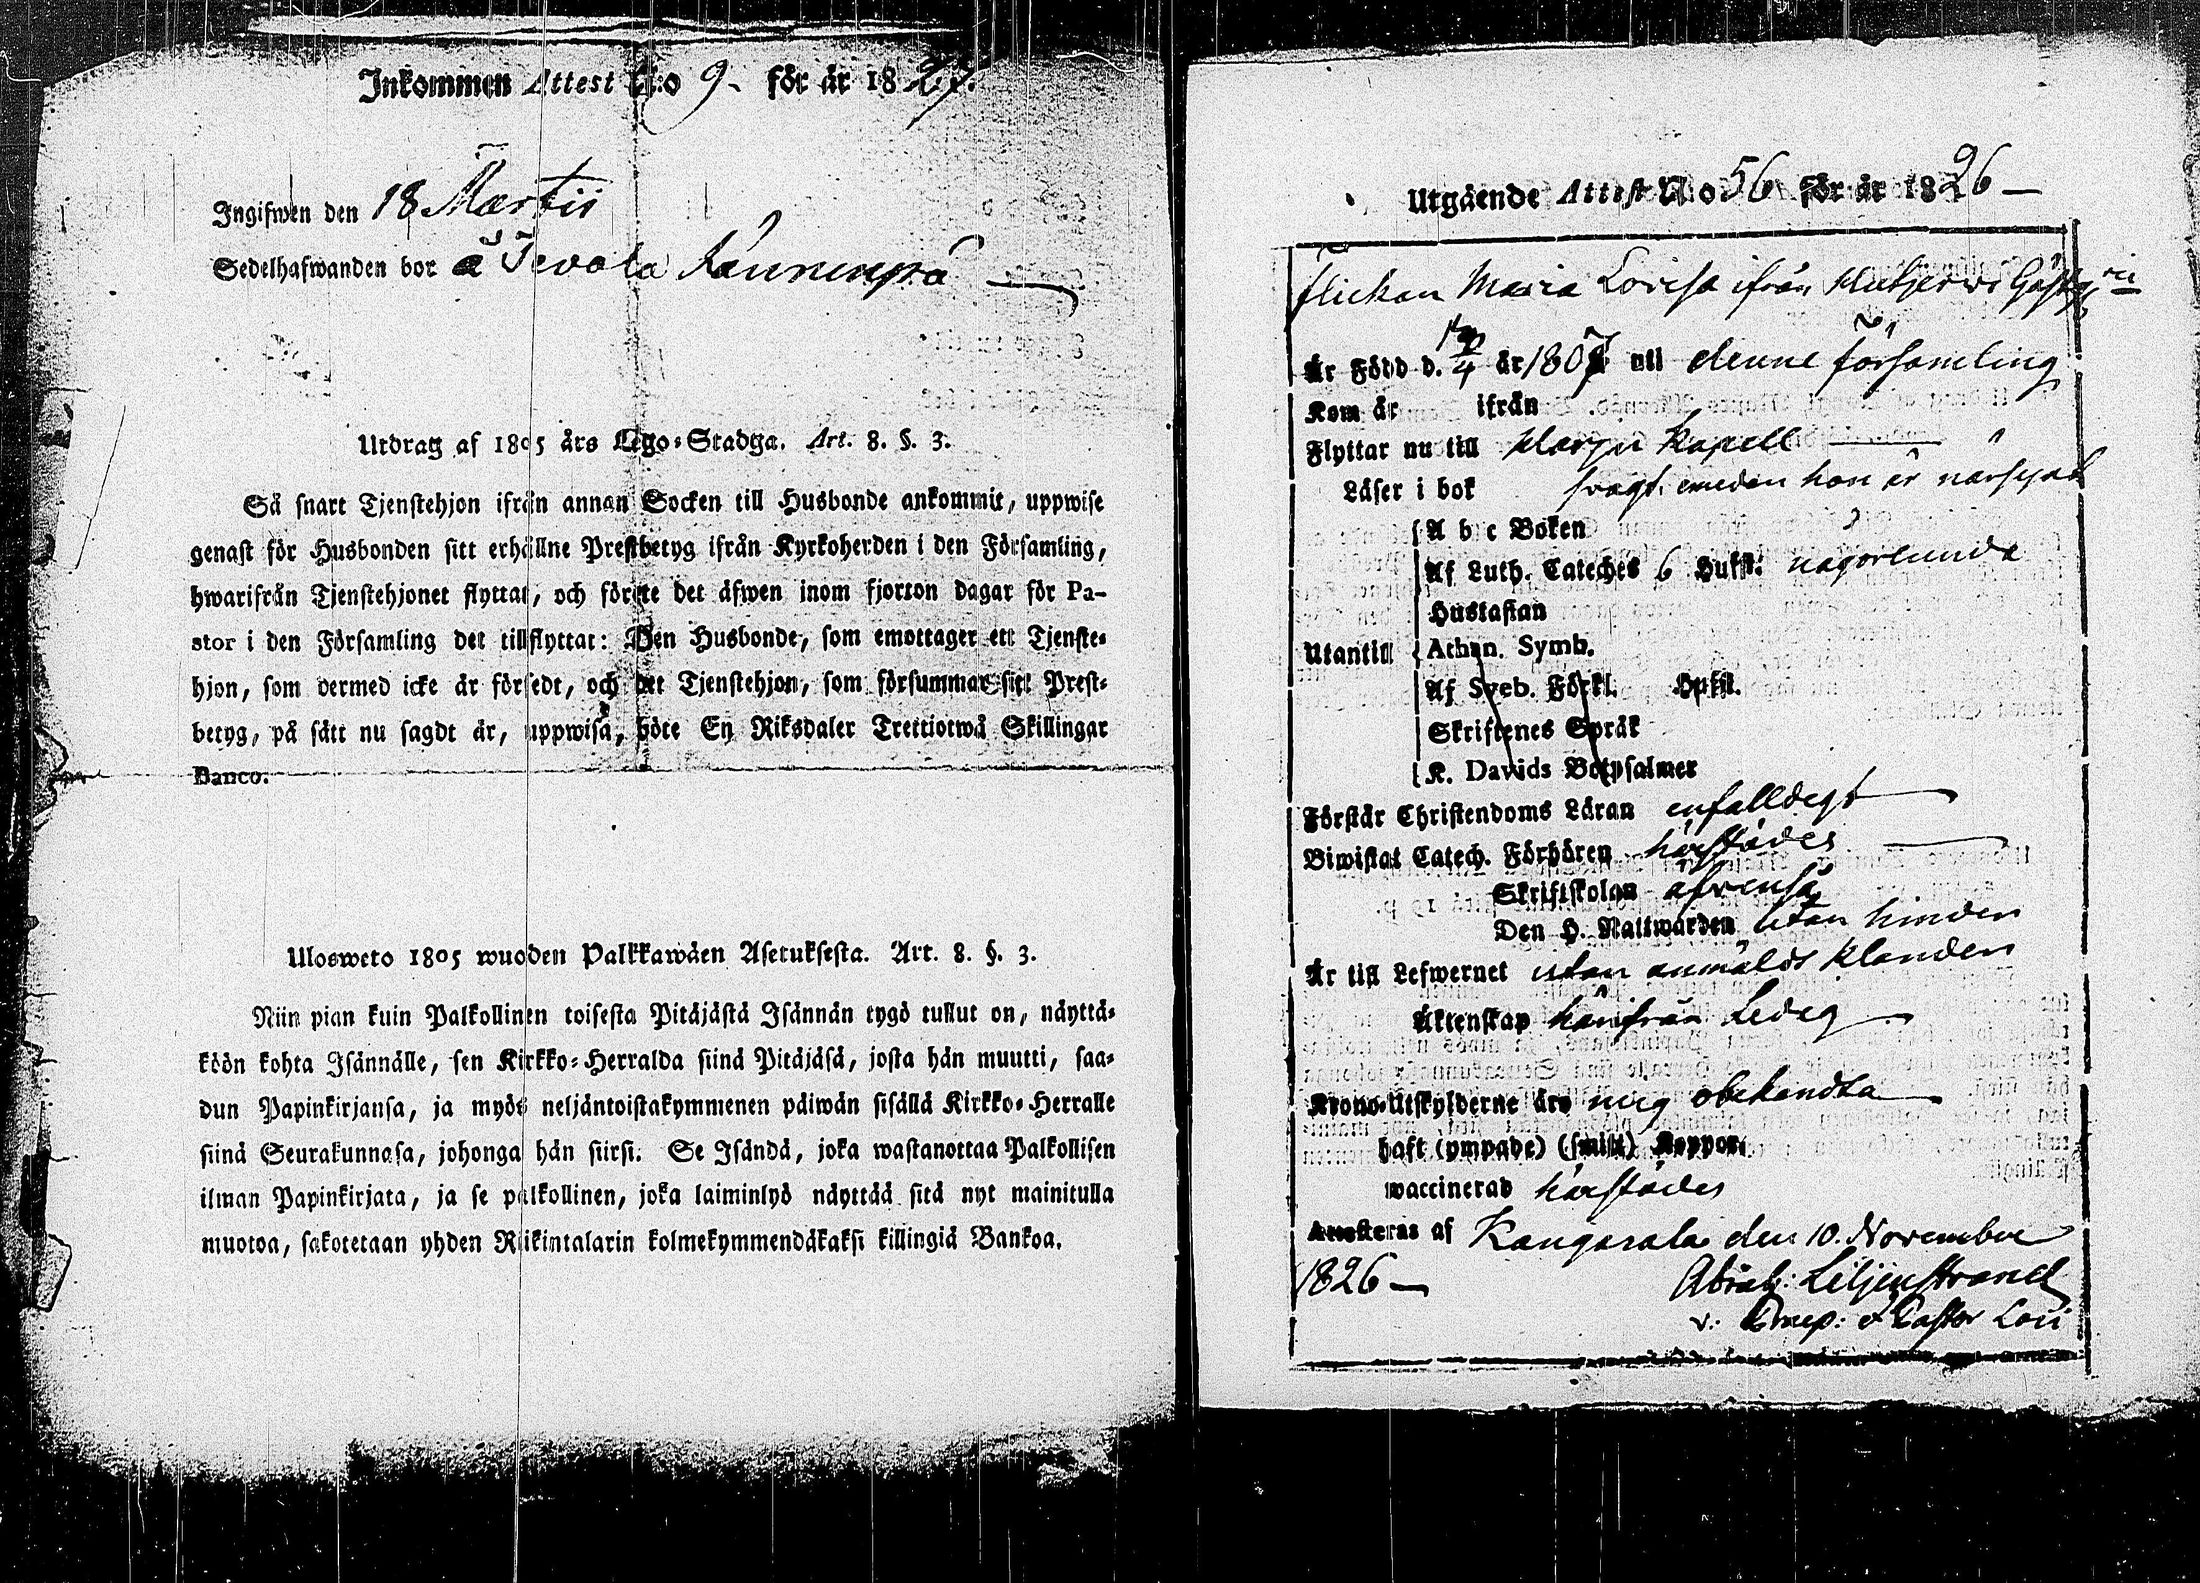 Inkommen Attest N:o 9 för år 1827.
Ingifwen den 18 Martii
Sedelhafwanden bor å
Utdrag af 1805 års Lego-Stadga. Art. 8. §. 3.
Så snart Tjenstehjon ifrån annan Socken till Husbonde ankommit, uppwise
genast för Husbonden sitt erhållne Prestbetyg ifrån Kyrkoherden i den Församling,
hwarifrån Tjenstehjonet flyttat, och förete det äfwen inom fjorton dagar för Pa-
stor i den Församling det tillflyttat: Den Husbonde, som emottager ett Tjenste-
hjon, som dermed icke är försedt, och det Tjenstehjon, som försummar sitt Prest-
betyg, på sätt nu sagdt är, uppwisa, böte En Riksdaler Trettiotwå Skillingar
Banco.
Ulosweto 1805 wuoden Palkkawäen Asetuksesta. Art. 8. §. 3.
Niin pian kuin Palkollinen toisesta Pitäjästä Isännän tygö tullut on, näyttä-
köön kohta Isännälle, sen Kirkko-Herralda siinä Pitäjäsä, josta hän muutti, saa-
dun Papinkirjansa, ja myös neljäntoistakymmenen päiwän sisällä Kirkko-Herralle
siinä Seurakunnasa, johonga hän siirsi. Se Isändä, joka wastanottaa Palkollisen
ilman Papinkirjata, ja se palkollinen, joka laiminlyö näyttää sitä nyt mainitulla
muotoa, sakotetaan yhden Riikintalarin kolmekymmendäkaksi killingiä Bankoa.
Utgående Attest N:o 56 för år 1826
Flickan Maria Lovisa ifrån
Är Född d. år 1807 uti denne församling
Kom år ifrån
Flyttar nu till Harju Kapell
Läser i bok svagt, emedan hon är närsynd
A b c Boken
Af Luth. Cateches 6 Hufst. någorlunda
Hustaflan
Utantill Athan. Symb.
Af Sveb. Förkl. Hufst.
Skriftenes Språk
K. Davids Botpsalmer
Förstår Christendoms Läran enfalldigt
Biwistat Catech. Förhören härstädes
Skriftskolan äfvenså
Den H. Nattwarden utan hinder
Är till Lefwernet utan anmäldt klander
Äktenskap härifrån Ledig
Krono-Utskylderne äro mig obekandta
haft (ympade) (smitt) Koppor,
waccinerad härstädes
Attesteras af Kangasala den 10. November
1826 Abrah: Liljenstrand
v. Past: Loci